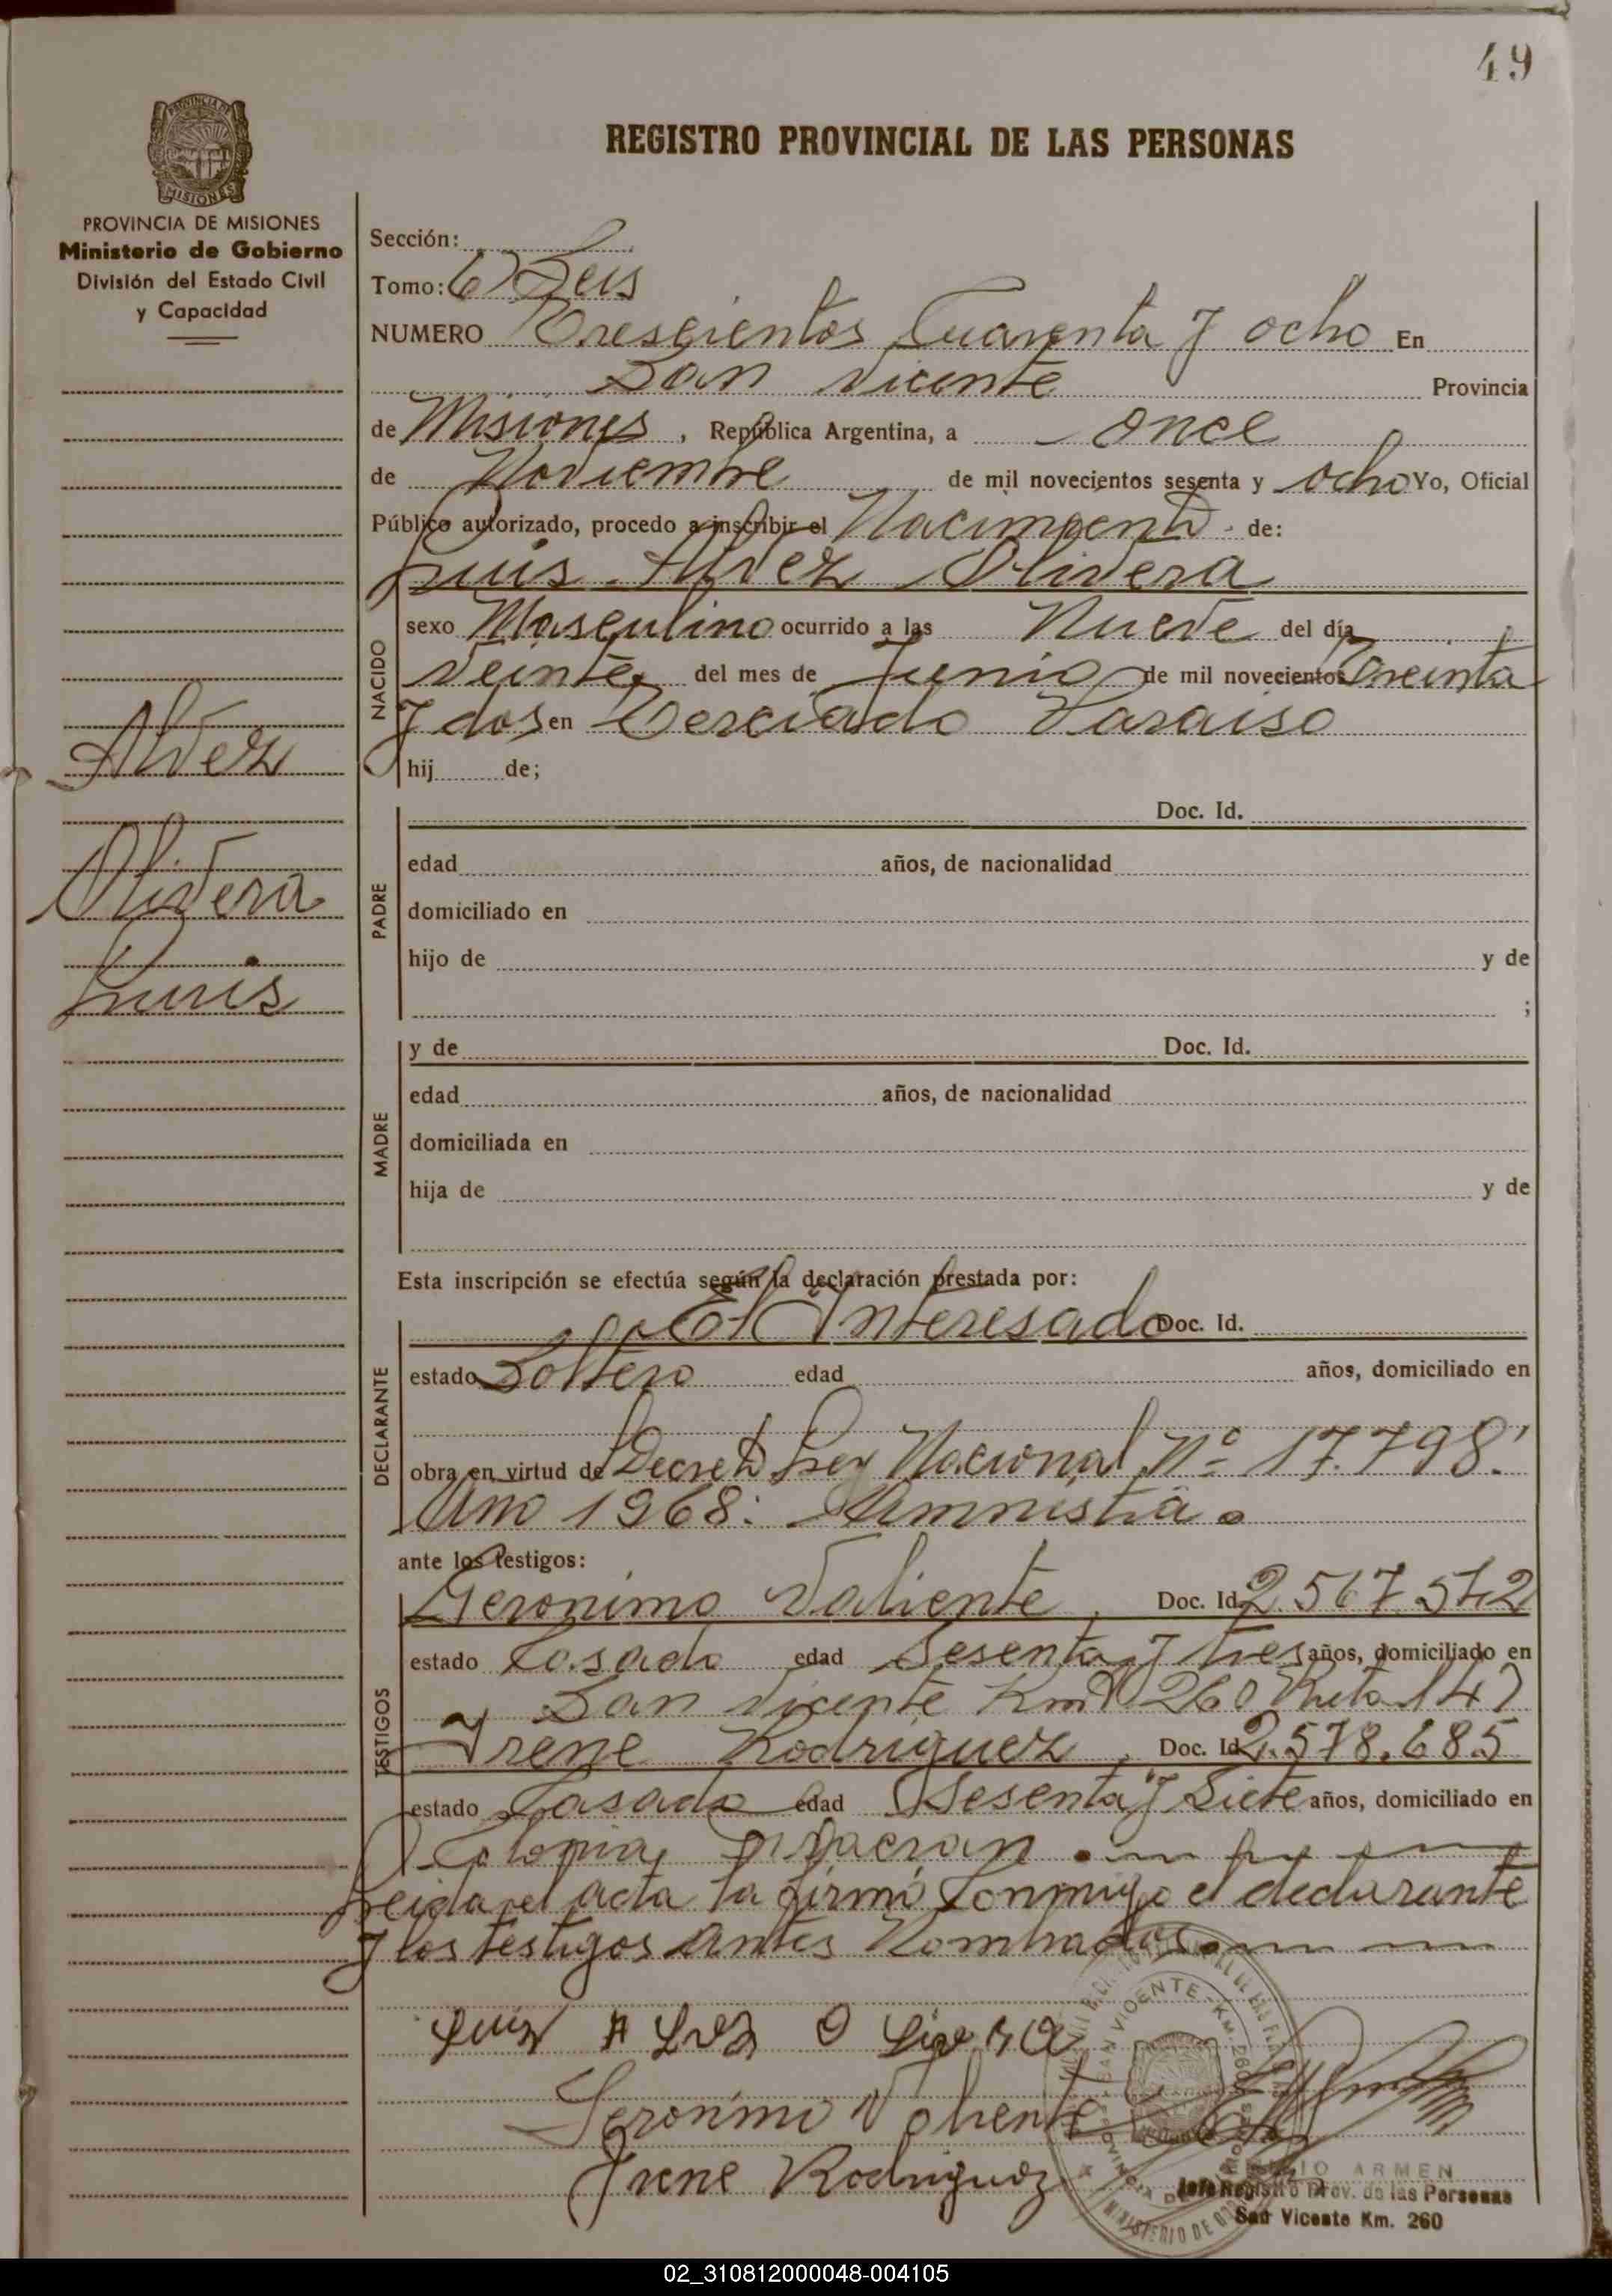 49
REGISTRO PROVINCIAL DE LAS PERSONAS
PROVINCIA DE
MISIONES
PROVINCIA DE MISIONES
Ministerio de Gobierno
División del Estado Civil
y Capacidad
Sección:
Tomo: 6) Seis
NUMERO Trescientos Cuarenta y ocho En
San Vicente Provincia
de Misiones, República Argentina, a once
de Noviembre de mil novecientos sesenta y ocho Yo, Oficial
Público autorizado, procedo a inscribir el Nacimiento de:
Luis Alvez Olivera
NACIDO
sexo Masculino ocurrido a las Nueve del día
veinte del mes de Junio de mil novecientos Treinta
y dos en Terciado Paraiso
hij de;
Alvez
Olivera
Luis
PADRE
Doc. Id.
edad años, de nacionalidad
domiciliado en
hijo de y de
;
MADRE
y de Doc. Id.
edad años, de nacionalidad
domiciliada en
hija de y de
Esta inscripción se efectúa según la declaración prestada por:
DECLARANTE
El Interesado Doc. Id.
estado Soltero edad años, domiciliado en
obra en virtud de Decreto Ley Nacional Nº 17.798.
Año 1968: Amnistia.
ante los testigos:
TESTIGOS
Geronimo Valiente, Doc. Id. 2.567.542
estado Casado edad Sesenta y tres años, domiciliado en
San Vicente Km 260 Ruta 14)
y Irene Rodriguez, Doc. Id. 2.578.685
estado Casado edad Sesenta y Siete años, domiciliado en
Colonia
Leida el acta la firmó Conmigo el declarante
y los testigos antes Nombrados.
Luis Alvz Olivera
Geronimo Valiente
Irene Rodriguez
SAN VICENTE - KM. 260
MINISTERIO DE
ARMEN
Jefe Registro Prov. de las Personas
San Vicente Km. 260
02_310812000048-004105